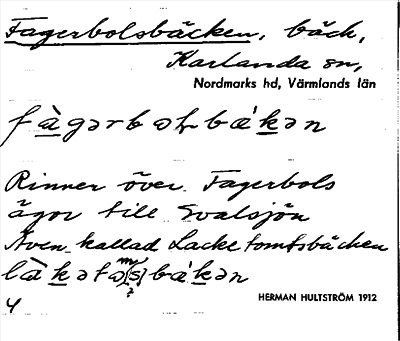 Fagerbolsbäcken, bäck,
Karlanda sn,
Nordmarks hd, Värmlands län
Rinner över Fagerbols
ägor till Svalsjön
Även kallad Lacketomtsbäcken
HERMAN HULTSTRÖM 1912
4